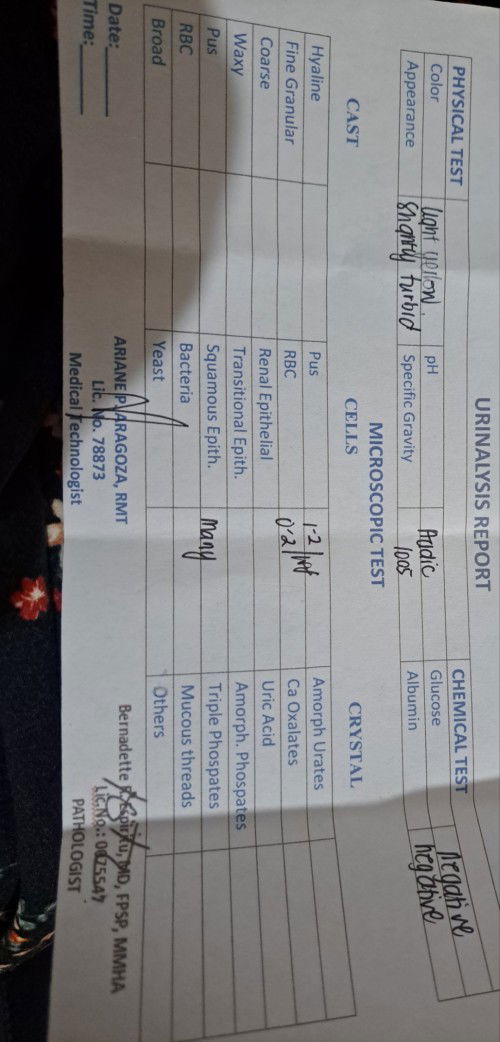 URINALYSIS REPORT
PHYSICAL TEST CHEMICAL TEST
Color light yellow pH Acidic Glucose negative
Appearance slightly turbid Specific Gravity 1005 Albumin negative
MICROSCOPIC TEST
CAST CELLS CRYSTAL
Hyaline Pus 1-2/hpf Amorph Urates
Fine Granular RBC 0-2/hpf Ca Oxalates
Coarse Renal Epithelial Uric Acid
Waxy Transitional Epith. Amorph. Phospates
Pus Squamous Epith. many Triple Phospates
RBC Bacteria Mucous threads
Broad Yeast Others
Date: ARIANE P. ARAGOZA, RMT Bernadette MD, FPSP, MMHA
Time: Lic. No. 78873 Lic.No.: 0075547
Medical Technologist PATHOLOGIST